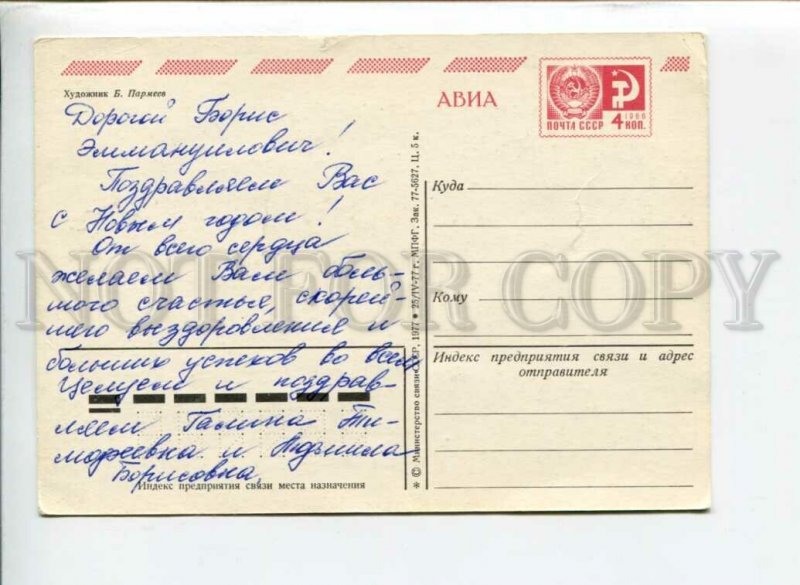 Художник Б. Пармеев
Дорогой Борис
Эммануилович!
Поздравляем Вас
с Новым годом!
От всего сердца
желаем Вам боль-
шого счастья, скорей-
шего выздоровления и
больших успехов во всем
Целуем и поздрав-
ляем Галина Ти-
мофеевна и Людмила
Борисовна.
Индекс предприятия связи места назначения
* © Министерство связи СССР, 1977 * 25/IV-77 г. МПФГ. Зак. 77-5627. Ц. 5 к.
АВИА
ПОЧТА СССР
1966
4 КОП.
Куда
Кому
Индекс предприятия связи и адрес
отправителя
NOT FOR COPY